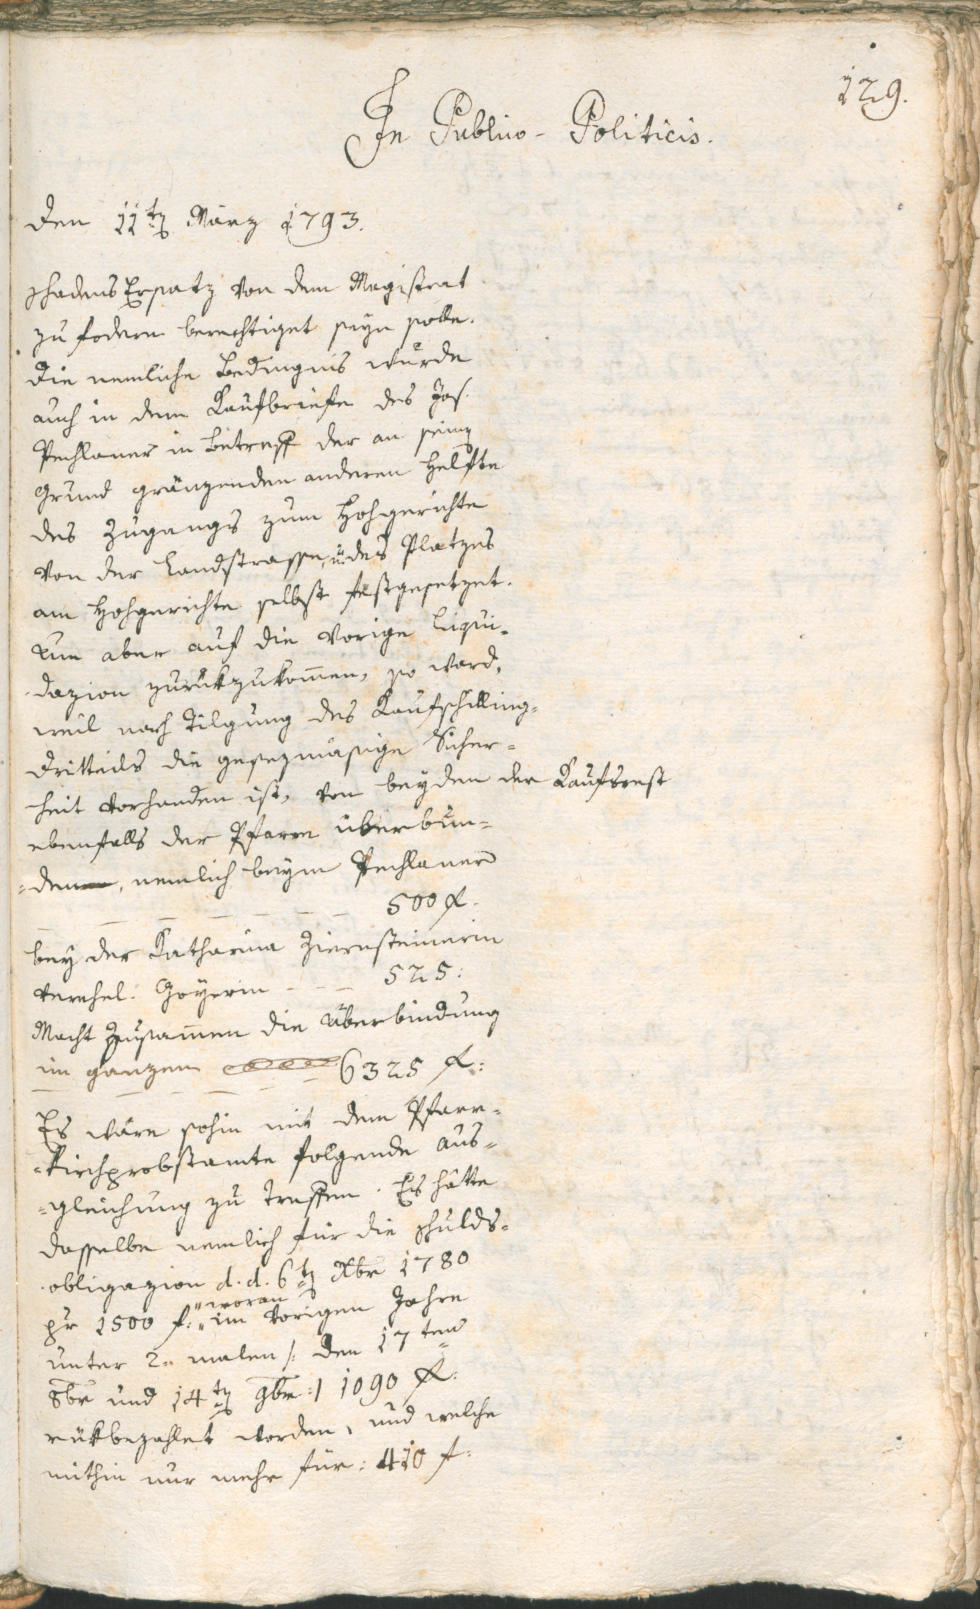 129.
In Publico-Politicis.
Den 11ten März 1793.
schadensErsatz von dem Magistrat
zu fodern berechtiget seyn solle.
Die nemliche Bedingnis wurde
auch in dem Kaufbriefe des Jos.
Pechlaner in Betreff der an seinen
Grund gränzenden anderen Helfte
des Zugangs zum Hohgerichte
von der Landstrasse, u: des Platzes
am Hohgerichte selbst festgesetzet.
Um aber auf die vorige Liqui-
dazion zurükzukom̄en, so ward,
weil nach Tilgung des Kaufschilling-
dritteils die gesezmäsige Sicher-
heit vorhanden ist, von beyden der Kaufsrest
ebenfalls der Pfarre überbun-
=den, nemlich beym Pechlaner
500 f.
bey der Katharina Ziernsteinerin
verehel: Goyerin - - - 525:
Macht zusam̄en die Überbindung
im ganzen 6325 f:
Es wäre sohin mit dem Pfarr-
=kirchprobstamte folgende Aus-
=gleichung zu treffen. Es hätte
dasselbe nemlich für die Schulds-
obligazion d. d. 6ten Xbr 1780
pr 1500 f: "woran" im vorigen Jahre
unter 2 malen /: den 17ten
8br und 14ten 9br :/ 1090 f:
rükbezahlet worden, und welche
mithin nur mehr für: 410 f: